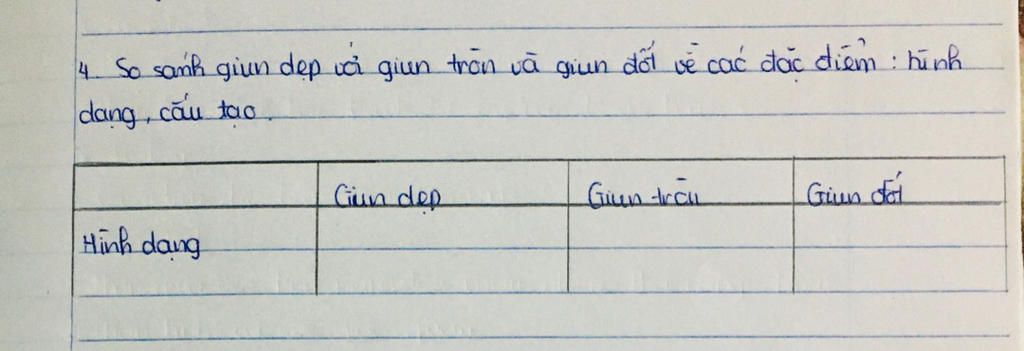 4. So sánh giun dẹp với giun tròn và giun đốt về các đặc điểm : hình
dạng, cấu tạo.
Giun dẹp Giun tròn Giun đốt
Hình dạng